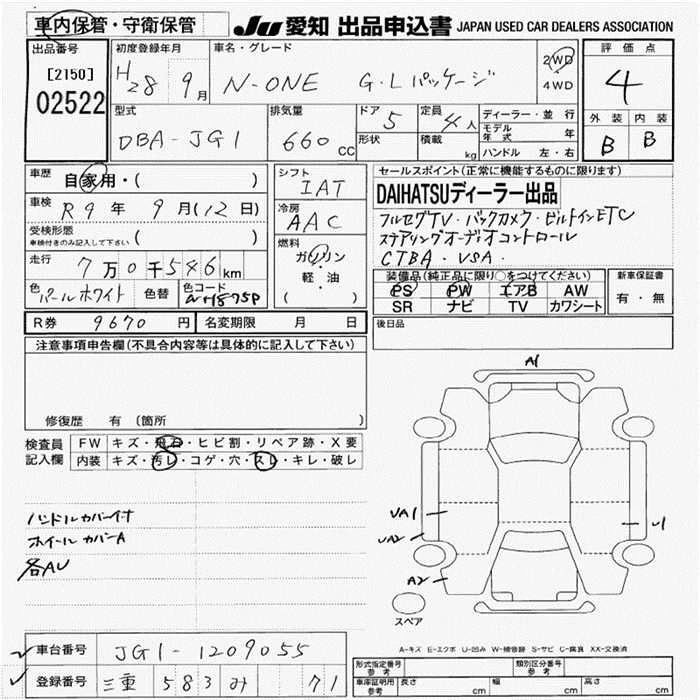 車内保管・守衛保管
JU 愛知 出品申込書 JAPAN USED CAR DEALERS ASSOCIATION
出品番号
[2150]
02522
初度登録年月
H28 9月
車名・グレード
N-ONE G・Lパッケージ
2WD・4WD
評価点
4
外装 内装
B B
型式
DBA-JG1
排気量
660cc
ドア 5
形状
定員 4人
積載 kg
ディーラー・並行
モデル年式 年
ハンドル 左・右
車歴
自家用・( )
車検
R9年 9月(12日)
受検形態
車検付きのみ記入して下さい ( )
走行
7万0千546km
色 パールホワイト 色替 色コード NH875P
シフト
IAT
冷房
AAC
燃料
ガソリン・軽・油
( )
セールスポイント(正常に機能するものに限ります)
DAIHATSUディーラー出品
フルセグTV・バックカメラ・ビルトインETC
ステアリングオーディオコントロール
CTBA・VSA・
装備品(純正品に限り○をつけてください)
PS PW エアB AW
SR ナビ TV カワシート
新車保証書
有・無
R券 9670円 名変期限 月 日
後日品
注意事項申告欄(不具合内容等は具体的に記入して下さい)
修復歴 有 (箇所 )
検査員記入欄
FW キズ・飛石・ヒビ割・リペア跡・X要
内装 キズ・汚レ・コゲ・穴・スレ・キレ・破レ
ハンドルカバー付
ホイールカバーA
各AU
A1
UA1
UA2
A2
U
スペア
A-キズ E-エクボ U-凹み W-補修跡 S-サビ C-腐食 XX-交換済
車台番号 JG1-1209055
登録番号 三重 583 み 71
形式指定番号 参考
類別区分番号 参考
車庫証明用 参考 長さ cm 幅 cm 高さ cm